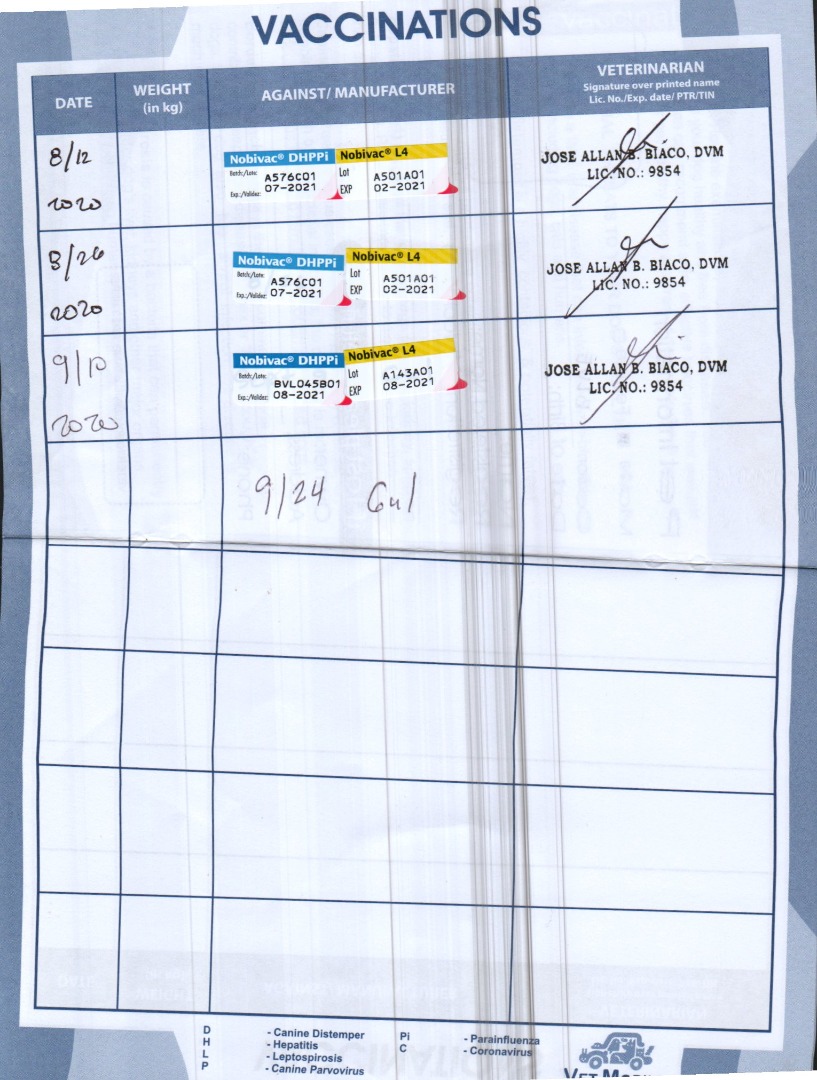 VACCINATIONS
DATE
WEIGHT
(in kg)
AGAINST/ MANUFACTURER
VETERINARIAN
Signature over printed name
Lic. No./Exp. date/ PTR/TIN
8/12
2020
Nobivac® DHPPi
Batch/Lote: A576C01
Exp.:/Validez: 07-2021
Nobivac® L4
Lot A501A01
EXP 02-2021
JOSE ALLAN B. BIACO, DVM
LIC. NO.: 9854
8/26
2020
Nobivac® DHPPi
Batch/Lote: A576C01
Exp.:/Validez: 07-2021
Nobivac® L4
Lot A501A01
EXP 02-2021
JOSE ALLAN B. BIACO, DVM
LIC. NO.: 9854
9/10
2020
Nobivac® DHPPi
Batch/Lote: BVL045B01
Exp.:/Validez: 08-2021
Nobivac® L4
Lot A143A01
EXP 08-2021
JOSE ALLAN B. BIACO, DVM
LIC. NO.: 9854
9/24
D - Canine Distemper
H - Hepatitis
L - Leptospirosis
P - Canine Parvovirus
Pi - Parainfluenza
C - Coronavirus
VET